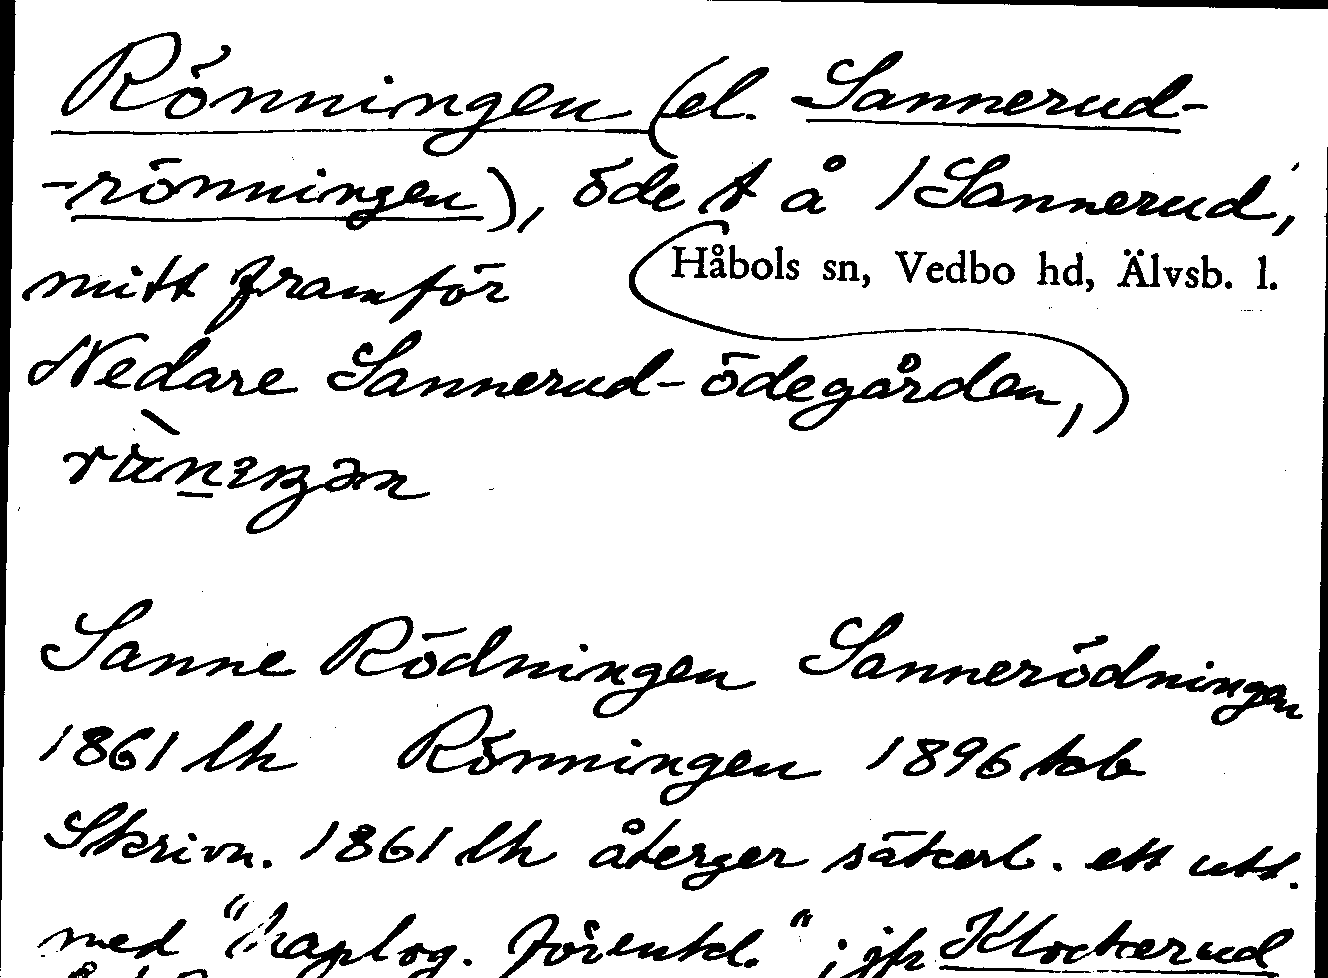 Rönningen (el. Sannerud-
-rönningen), öde t å 1 Sannerud,
mitt framför
Håbols sn, Vedbo hd, Älvsb. l.
Nedare Sannerud-ödegården,)
Sanne Rödningen Sannerödningen
1861 lh Rönningen 1896 kb
Skrivn. 1861 lh återger säkerl. ett utt.
med "haplog. förenkl."; jfr Klockerud